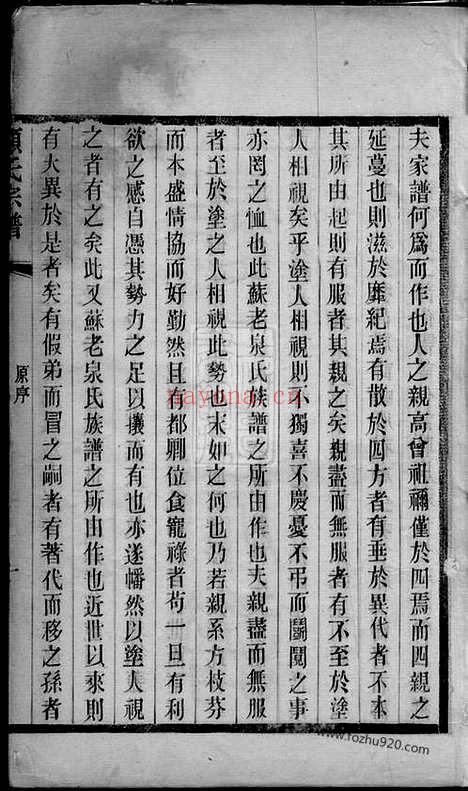 夫家譜何爲而作也人之親高曾祖禰僅於四焉而四親之
延蔓也則滋於靡紀焉有散於四方者有垂於異代者不本
其所由起則有服者其親之矣親盡而無服者有不至於塗
人相視矣乎塗人相視則不獨喜不慶憂不弔而鬬鬩之事
亦罔之恤也此蘇老泉氏族譜之所由作也夫親盡而無服
者至於塗之人相視此勢也末如之何也乃若親系方枝芬
而本盛情協而好勤然且有都卿位食寵祿者苟一旦有利
欲之感自憑其勢力之足以攘而有也亦遂幡然以塗人視
之者有之矣此又蘇老泉氏族譜之所由作也近世以來則
有大異於是者矣有假弟而冒之嗣者有著代而移之孫者
氏宗譜
原序
nayona.cn
www.fozhu920.com